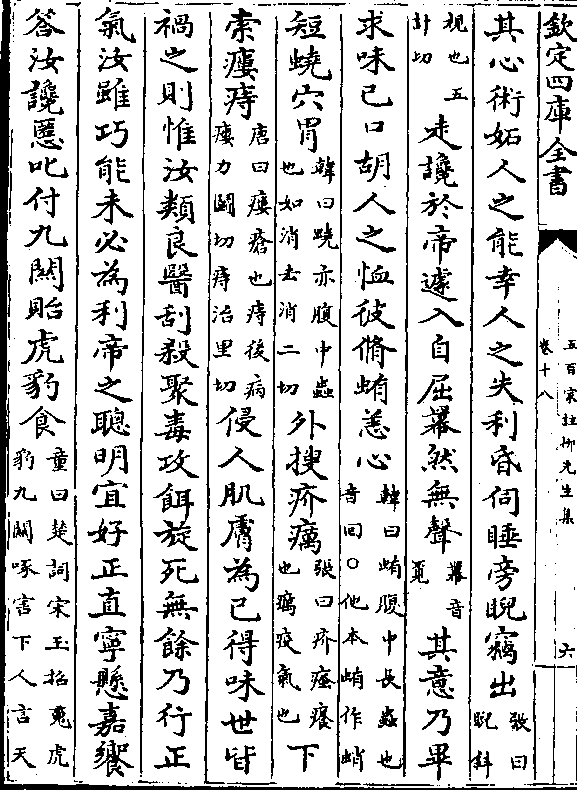 欽定四庫全書
五百家註柳先生集
卷十八
六
其心術妬人之能幸人之失利昏伺睡旁睨竊出敦曰睨斜
視也五計切走讒於帝遽入自屈羃然無聲羃音覓其意乃畢
求味已口胡人之恤彼脩蛕恙心韓曰蛕腹中長蟲也音回○他本蛕作蛸
短蟯穴胃韓曰蟯亦腹中蟲也如消去消二切外搜疥癘張曰疥瘙癢也癘疫氣也下
索瘻痔唐曰瘻瘡也痔後病瘻力鬭切痔治里切侵人肌膚為已得味世皆
禍之則惟汝類良醫刮殺聚毒攻餌旋死無餘乃行正
氣汝雖巧能未必為利帝之聰明宜好正直寧懸嘉饗
答汝讒慝叱付九關貽虎豹食童曰楚詞宋玉招䰟虎豹九關啄害下人言天